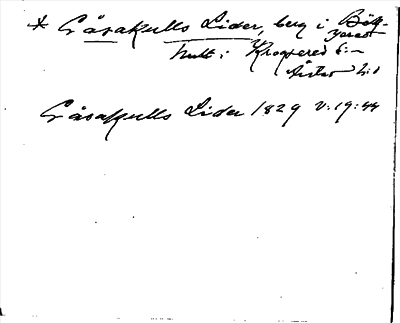 * Gåsakulls Lider, berg i Bög-
hult i Krogsered s:n
Årstad h:d
Gåsakulls Lider 1829 V:19:44